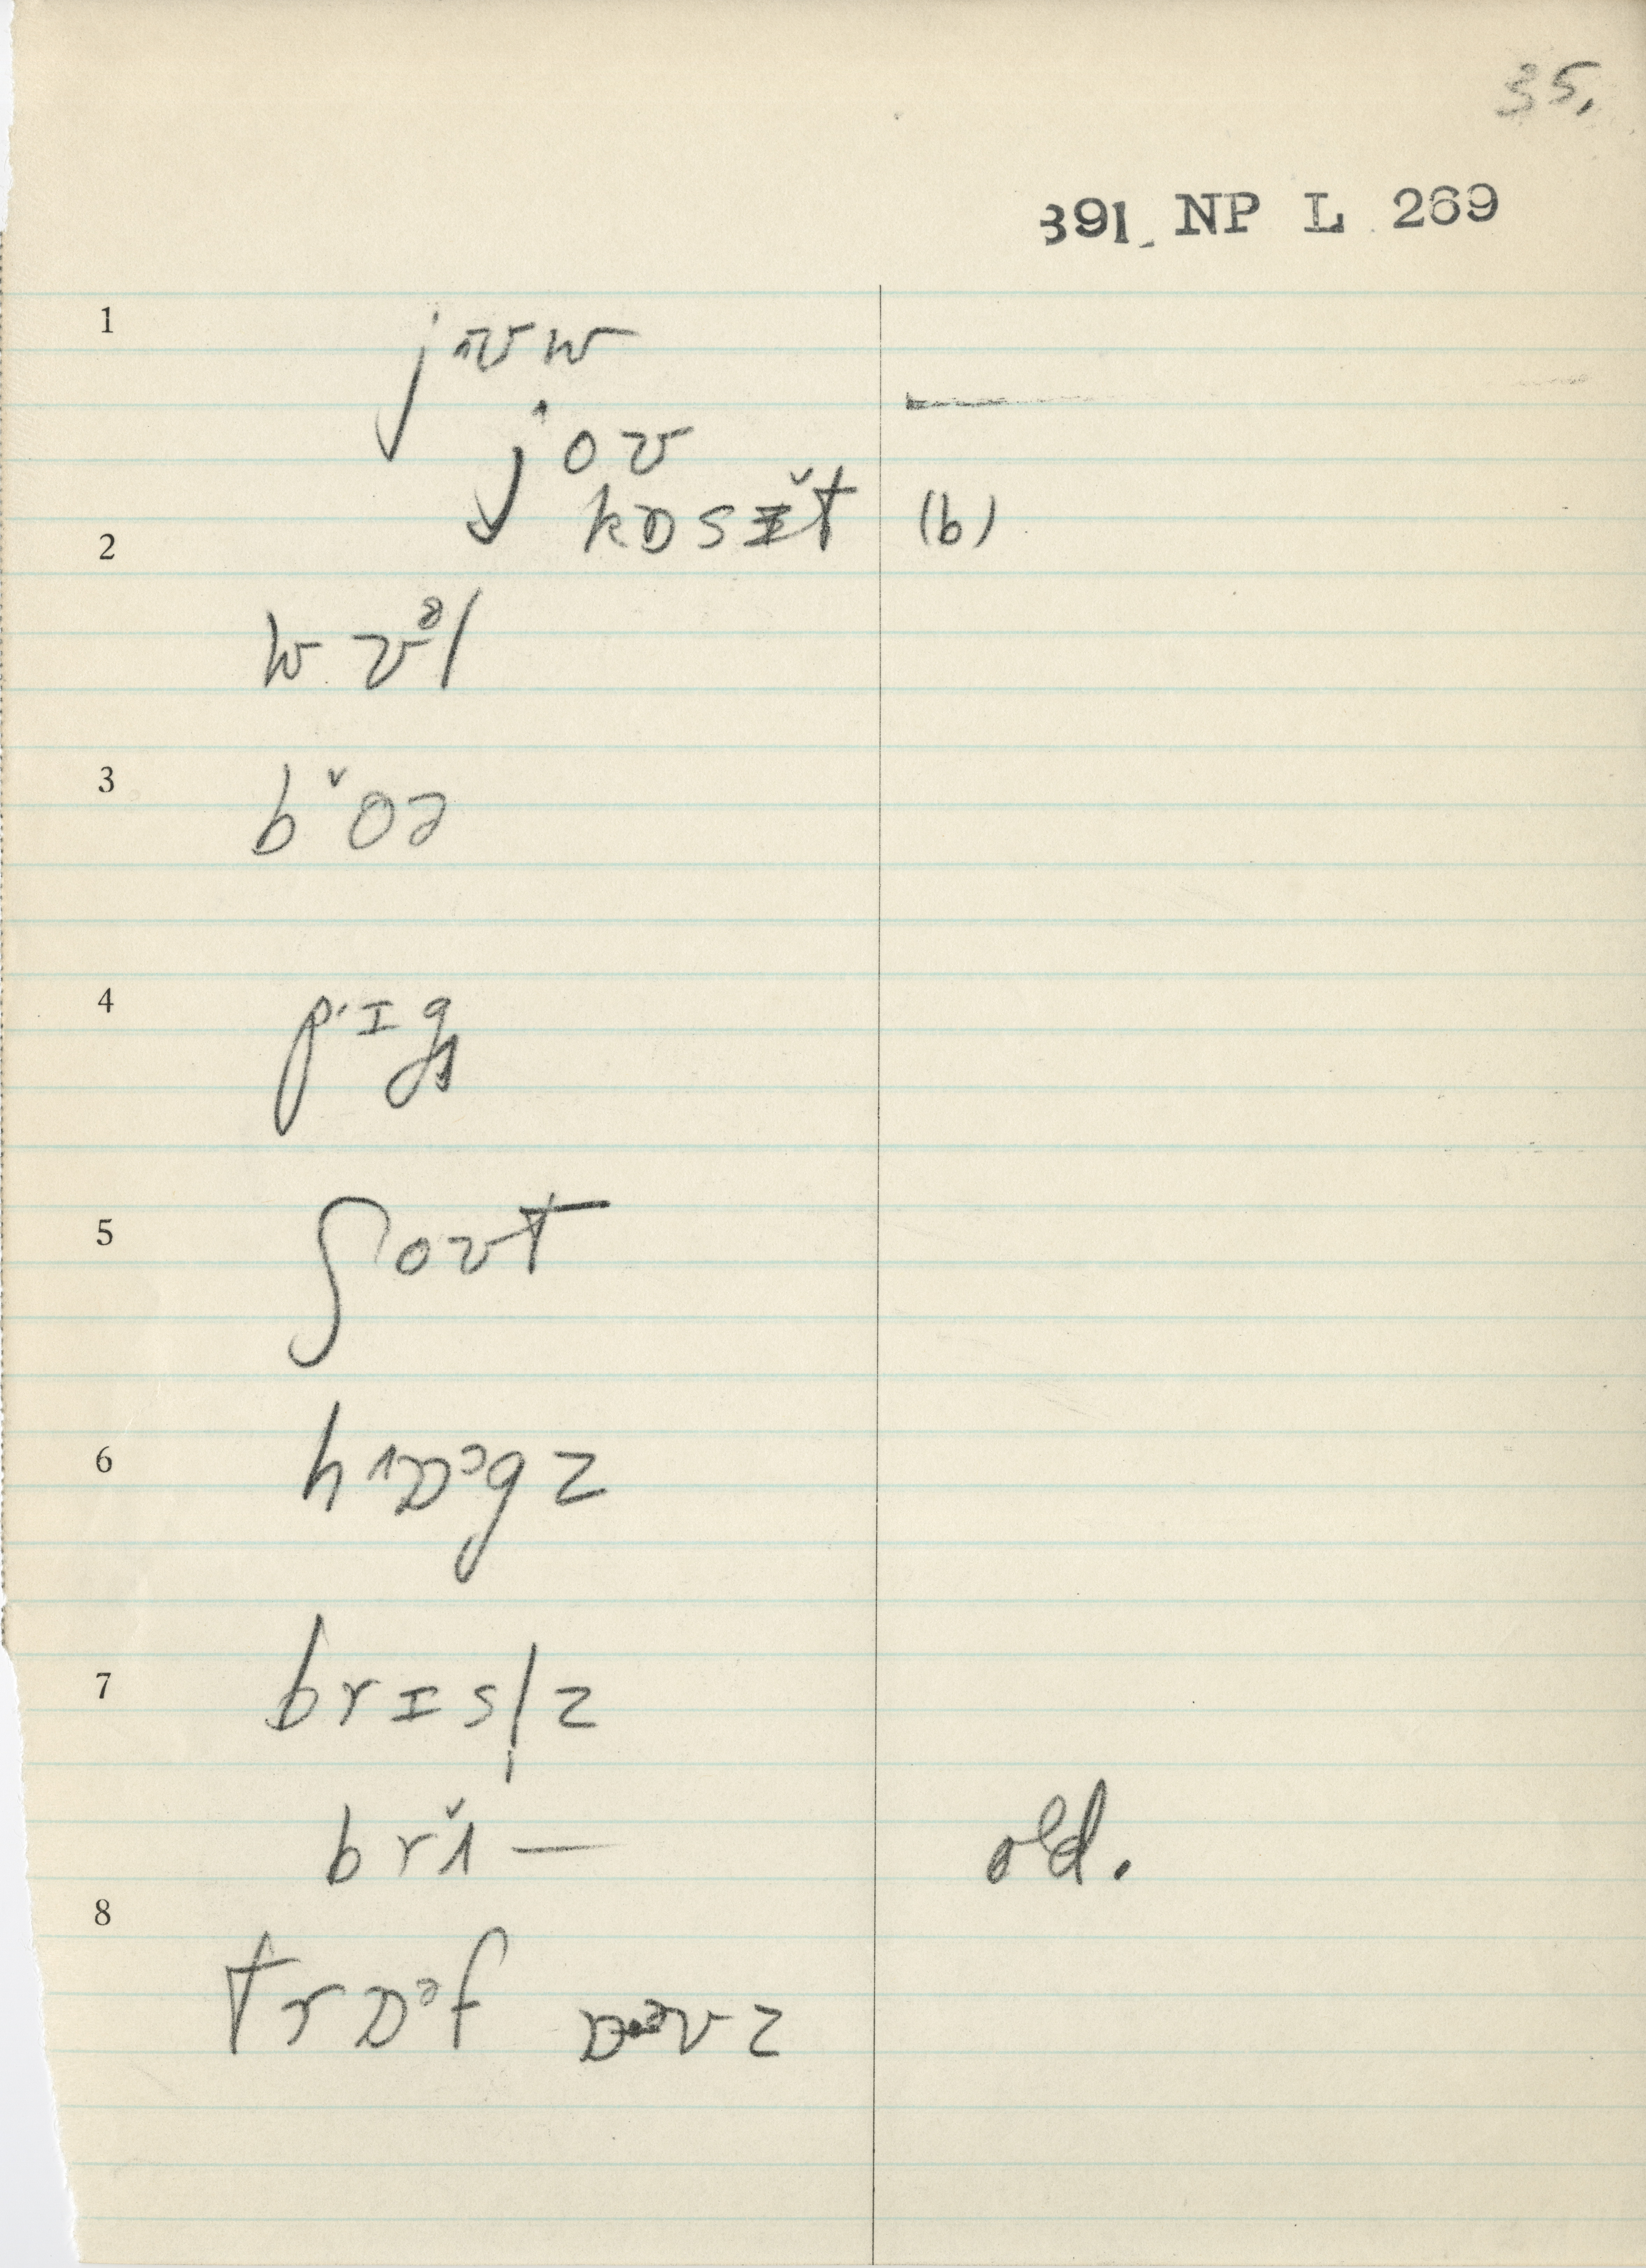 35.
391 NP L 269
1
j ʌʊ w
j o ʊ
2
kɒsɪ̆t (b)
wʊᵊl
3
b ˇoə
4
pˑɪg
5
ʃoʊt
6
h ɒᵓg z
7
brɪsl̩z
brɨ̆ — old.
8
trɒᵊf